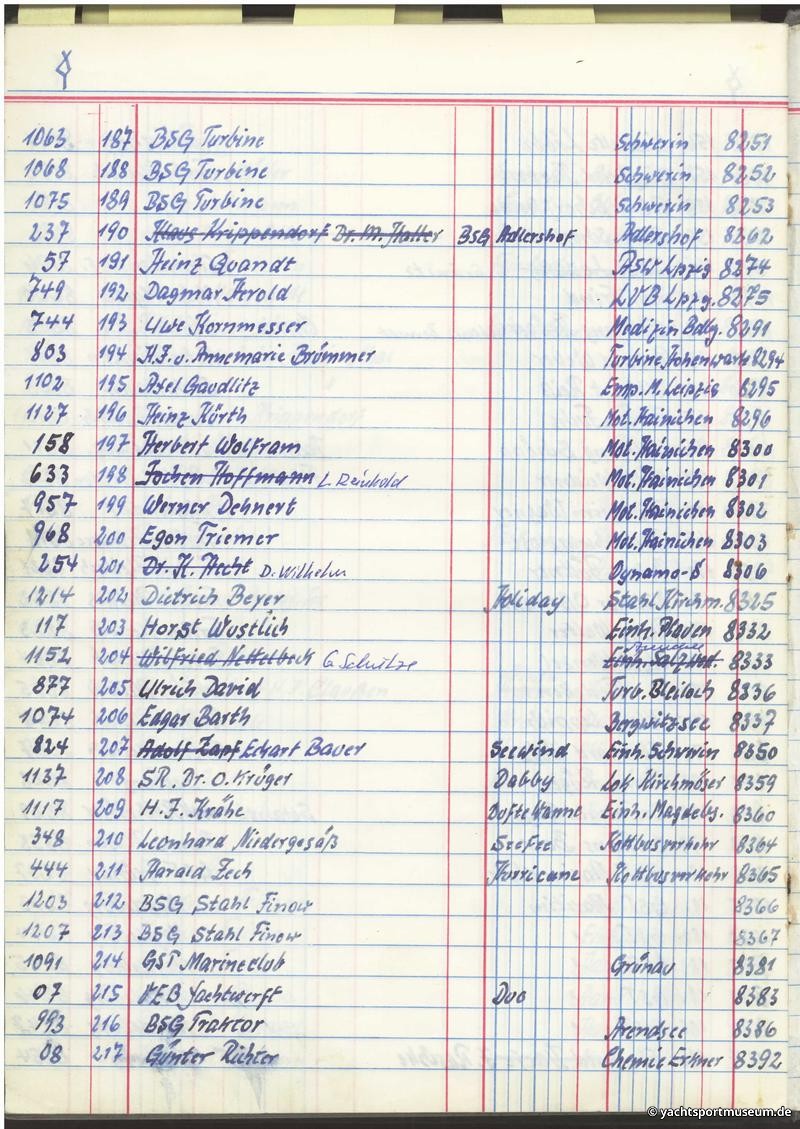 1063 187 BSG Turbine Schwerin 8251
1068 188 BSG Turbine Schwerin 8252
1075 189 BSG Turbine Schwerin 8253
237 190 Klaus Krippendorf Dr. M. Halter BSG Adlershof Adlershof 8262
57 191 Heinz Quandt ASW Lpzig 8274
749 192 Dagmar Herold LVB Lpzg. 8275
744 193 Uwe Kornmesser Medizin Bdlg. 8291
803 194 H.F. v. Annemarie Brümmer Turbine Hohenwarte 8294
1102 195 Axel Gaudlitz Emp. M. Leipzig 8295
1127 196 Heinz Hürth Mot. Hainichen 8296
158 197 Herbert Wolfram Mot. Hainichen 8300
633 198 Jochen Hoffmann L. Reinhold Mot. Hainichen 8301
957 199 Werner Dehnert Mot. Hainichen 8302
968 200 Egon Triemer Mot. Hainichen 8303
254 201 Dr. K. Hecht D. Wilhelm Dynamo-S 8306
1214 202 Dietrich Beyer Holiday Stahl Kirchm. 8325
117 203 Horst Wustlich Einh. Plauen 8332
1152 204 Wilfried Nettelbeck G Schulze Einh. Salzwd. 8333
877 205 Ulrich David Turb. Bleiloch 8336
1074 206 Edgar Barth Bergwitzsee 8337
824 207 Adolf Zapf Eckart Bauer Seewind Einh. Schwerin 8350
1137 208 SR. Dr. O. Krüger Dabby Lok Kirchmöser 8359
1117 209 H.F. Krähe Dufte Wanne Einh. Magdebg. 8360
348 210 Leonhard Niedergesäß Seefee Kottbusverkehr 8364
444 211 Harald Zech Hurricane Kottbusverkehr 8365
1203 212 BSG Stahl Finow 8366
1207 213 BSG Stahl Finow 8367
1091 214 GST Marineclub Grünau 8381
07 215 VEB Yachtwerft Duo 8383
993 216 BSG Traktor Arendsee 8386
08 217 Günter Richter Chemie Erkner 8392
© yachtsportmuseum.de